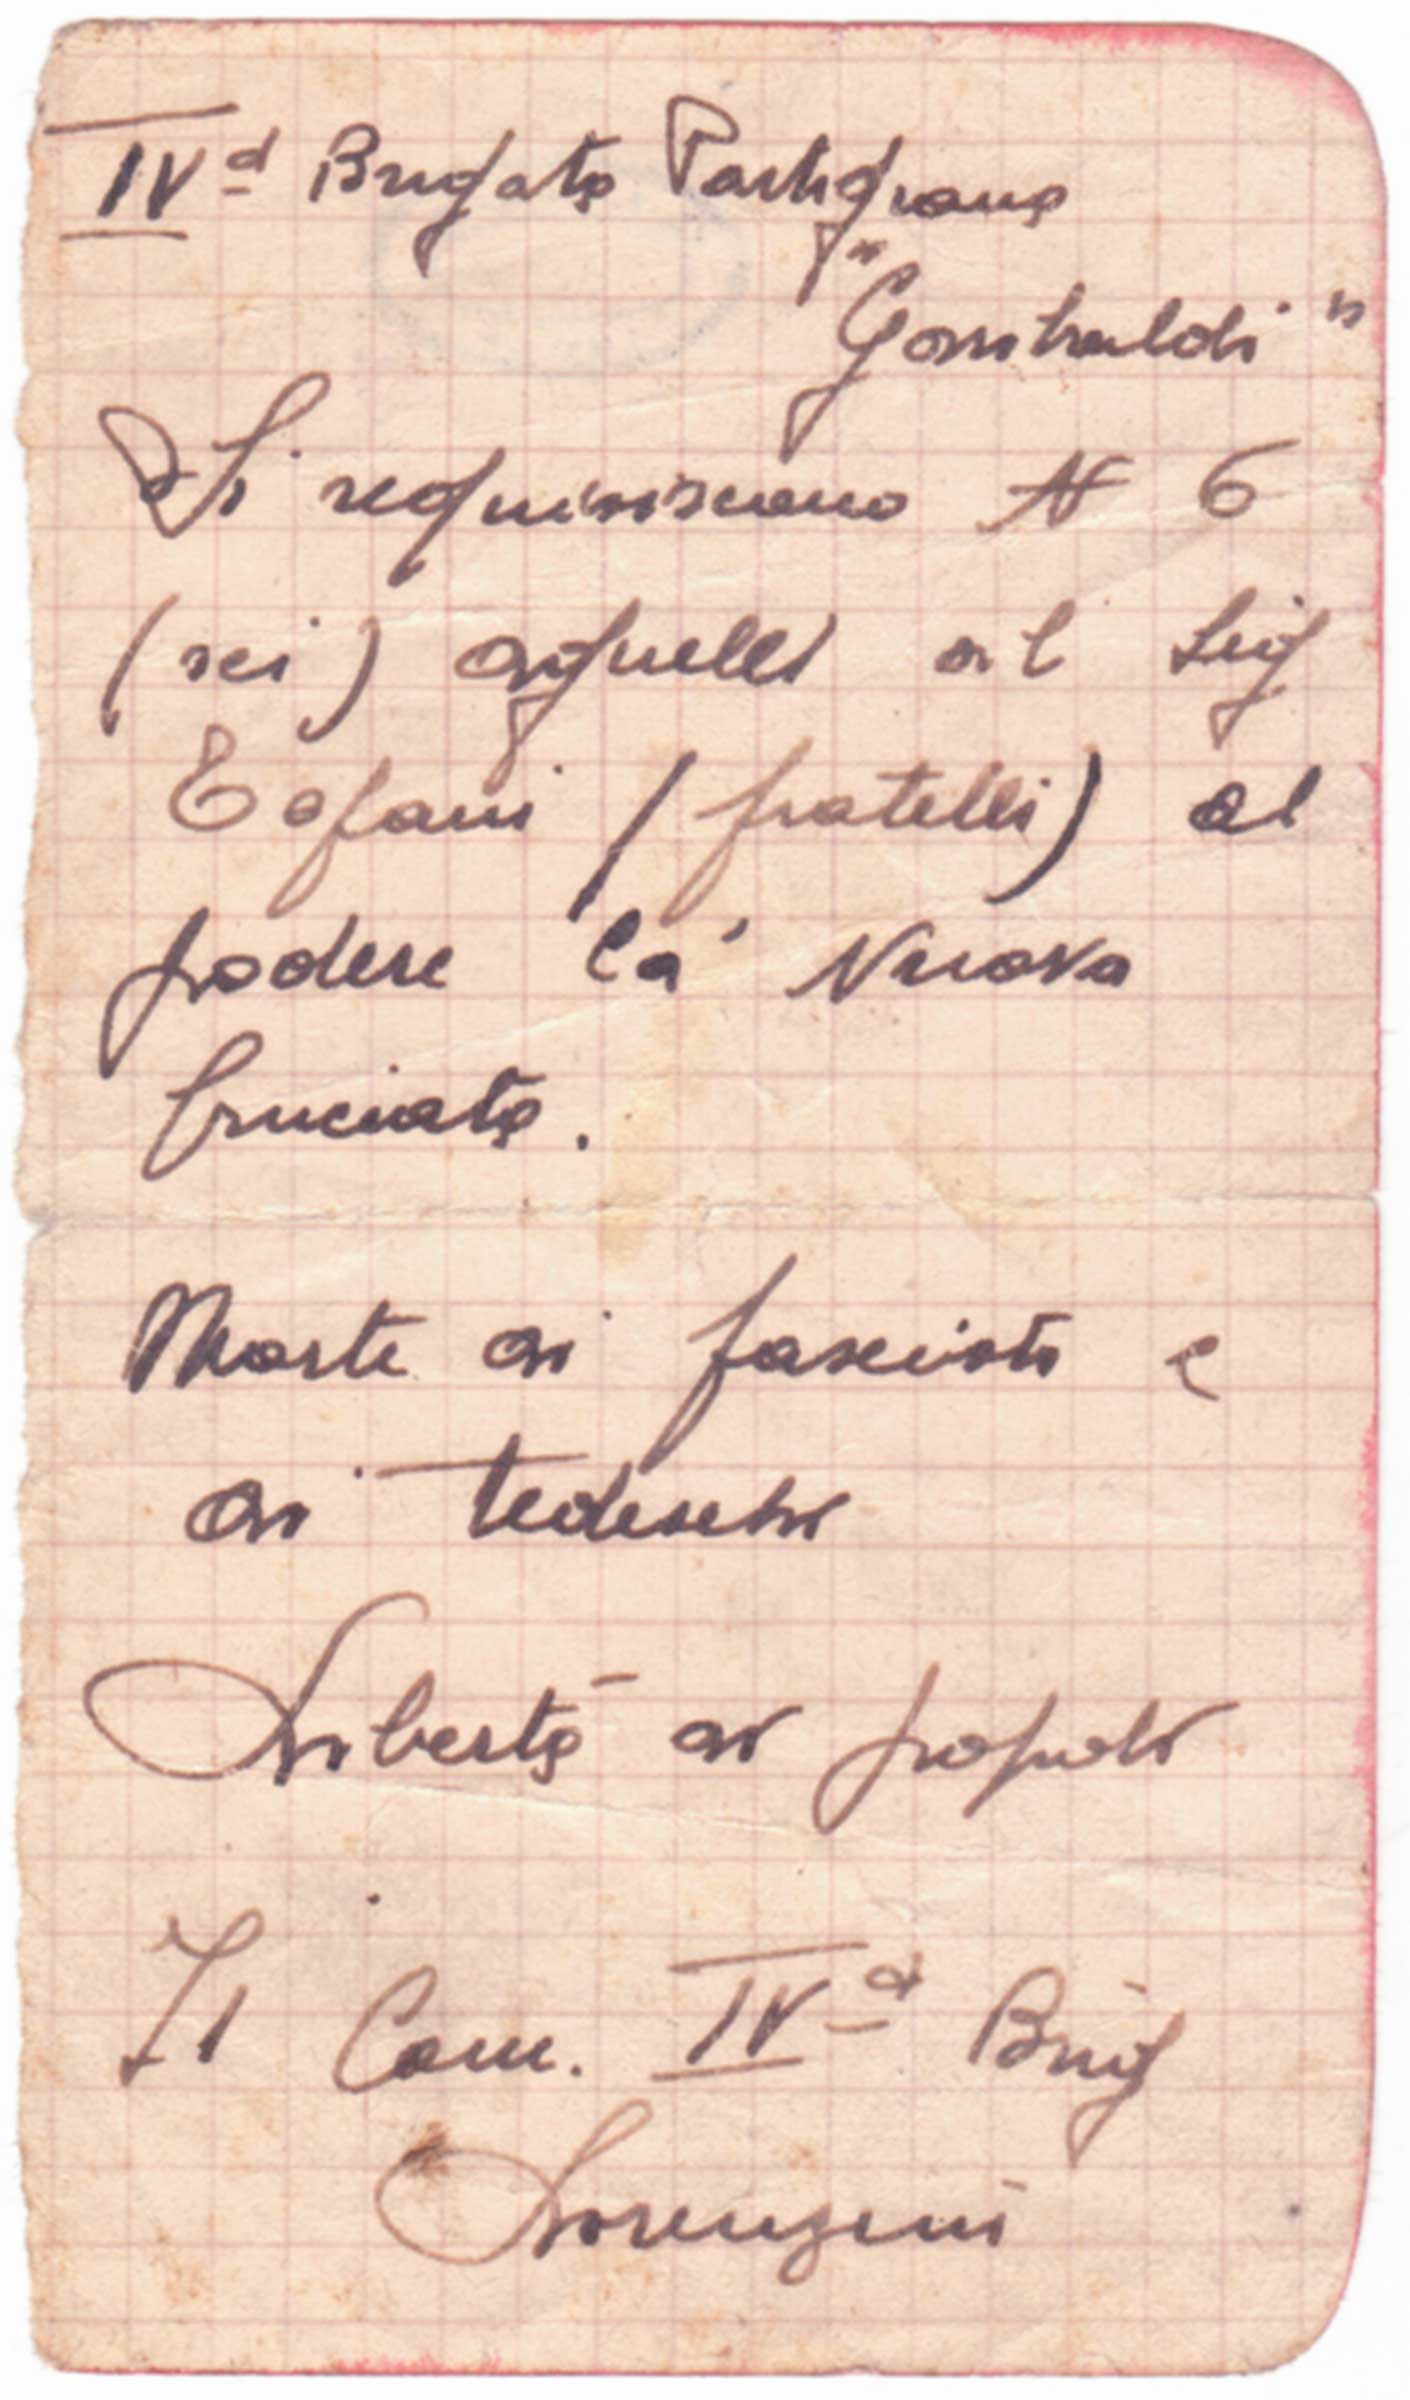 IVª Brigata Partigiana
"Garibaldi"
Si requisiscono N 6
(sei) agnelli al Sig
Tofani (fratelli) al
podere Ca' Nuova
bruciata.
Morte ai fascisti e
ai tedeschi
Libertà ai popoli
Il Com. IVª Brig
Lorenzini